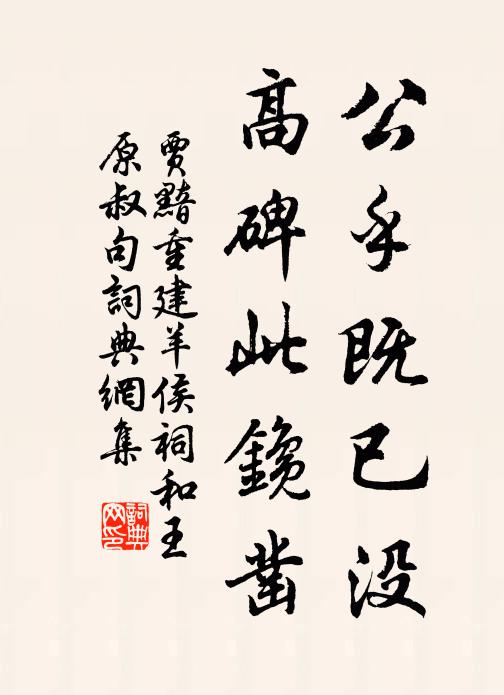 公乎既已没
高碑此鑱凿
贾黯重建羊侯祠和王
原叔句詞典網集
詞典
网印